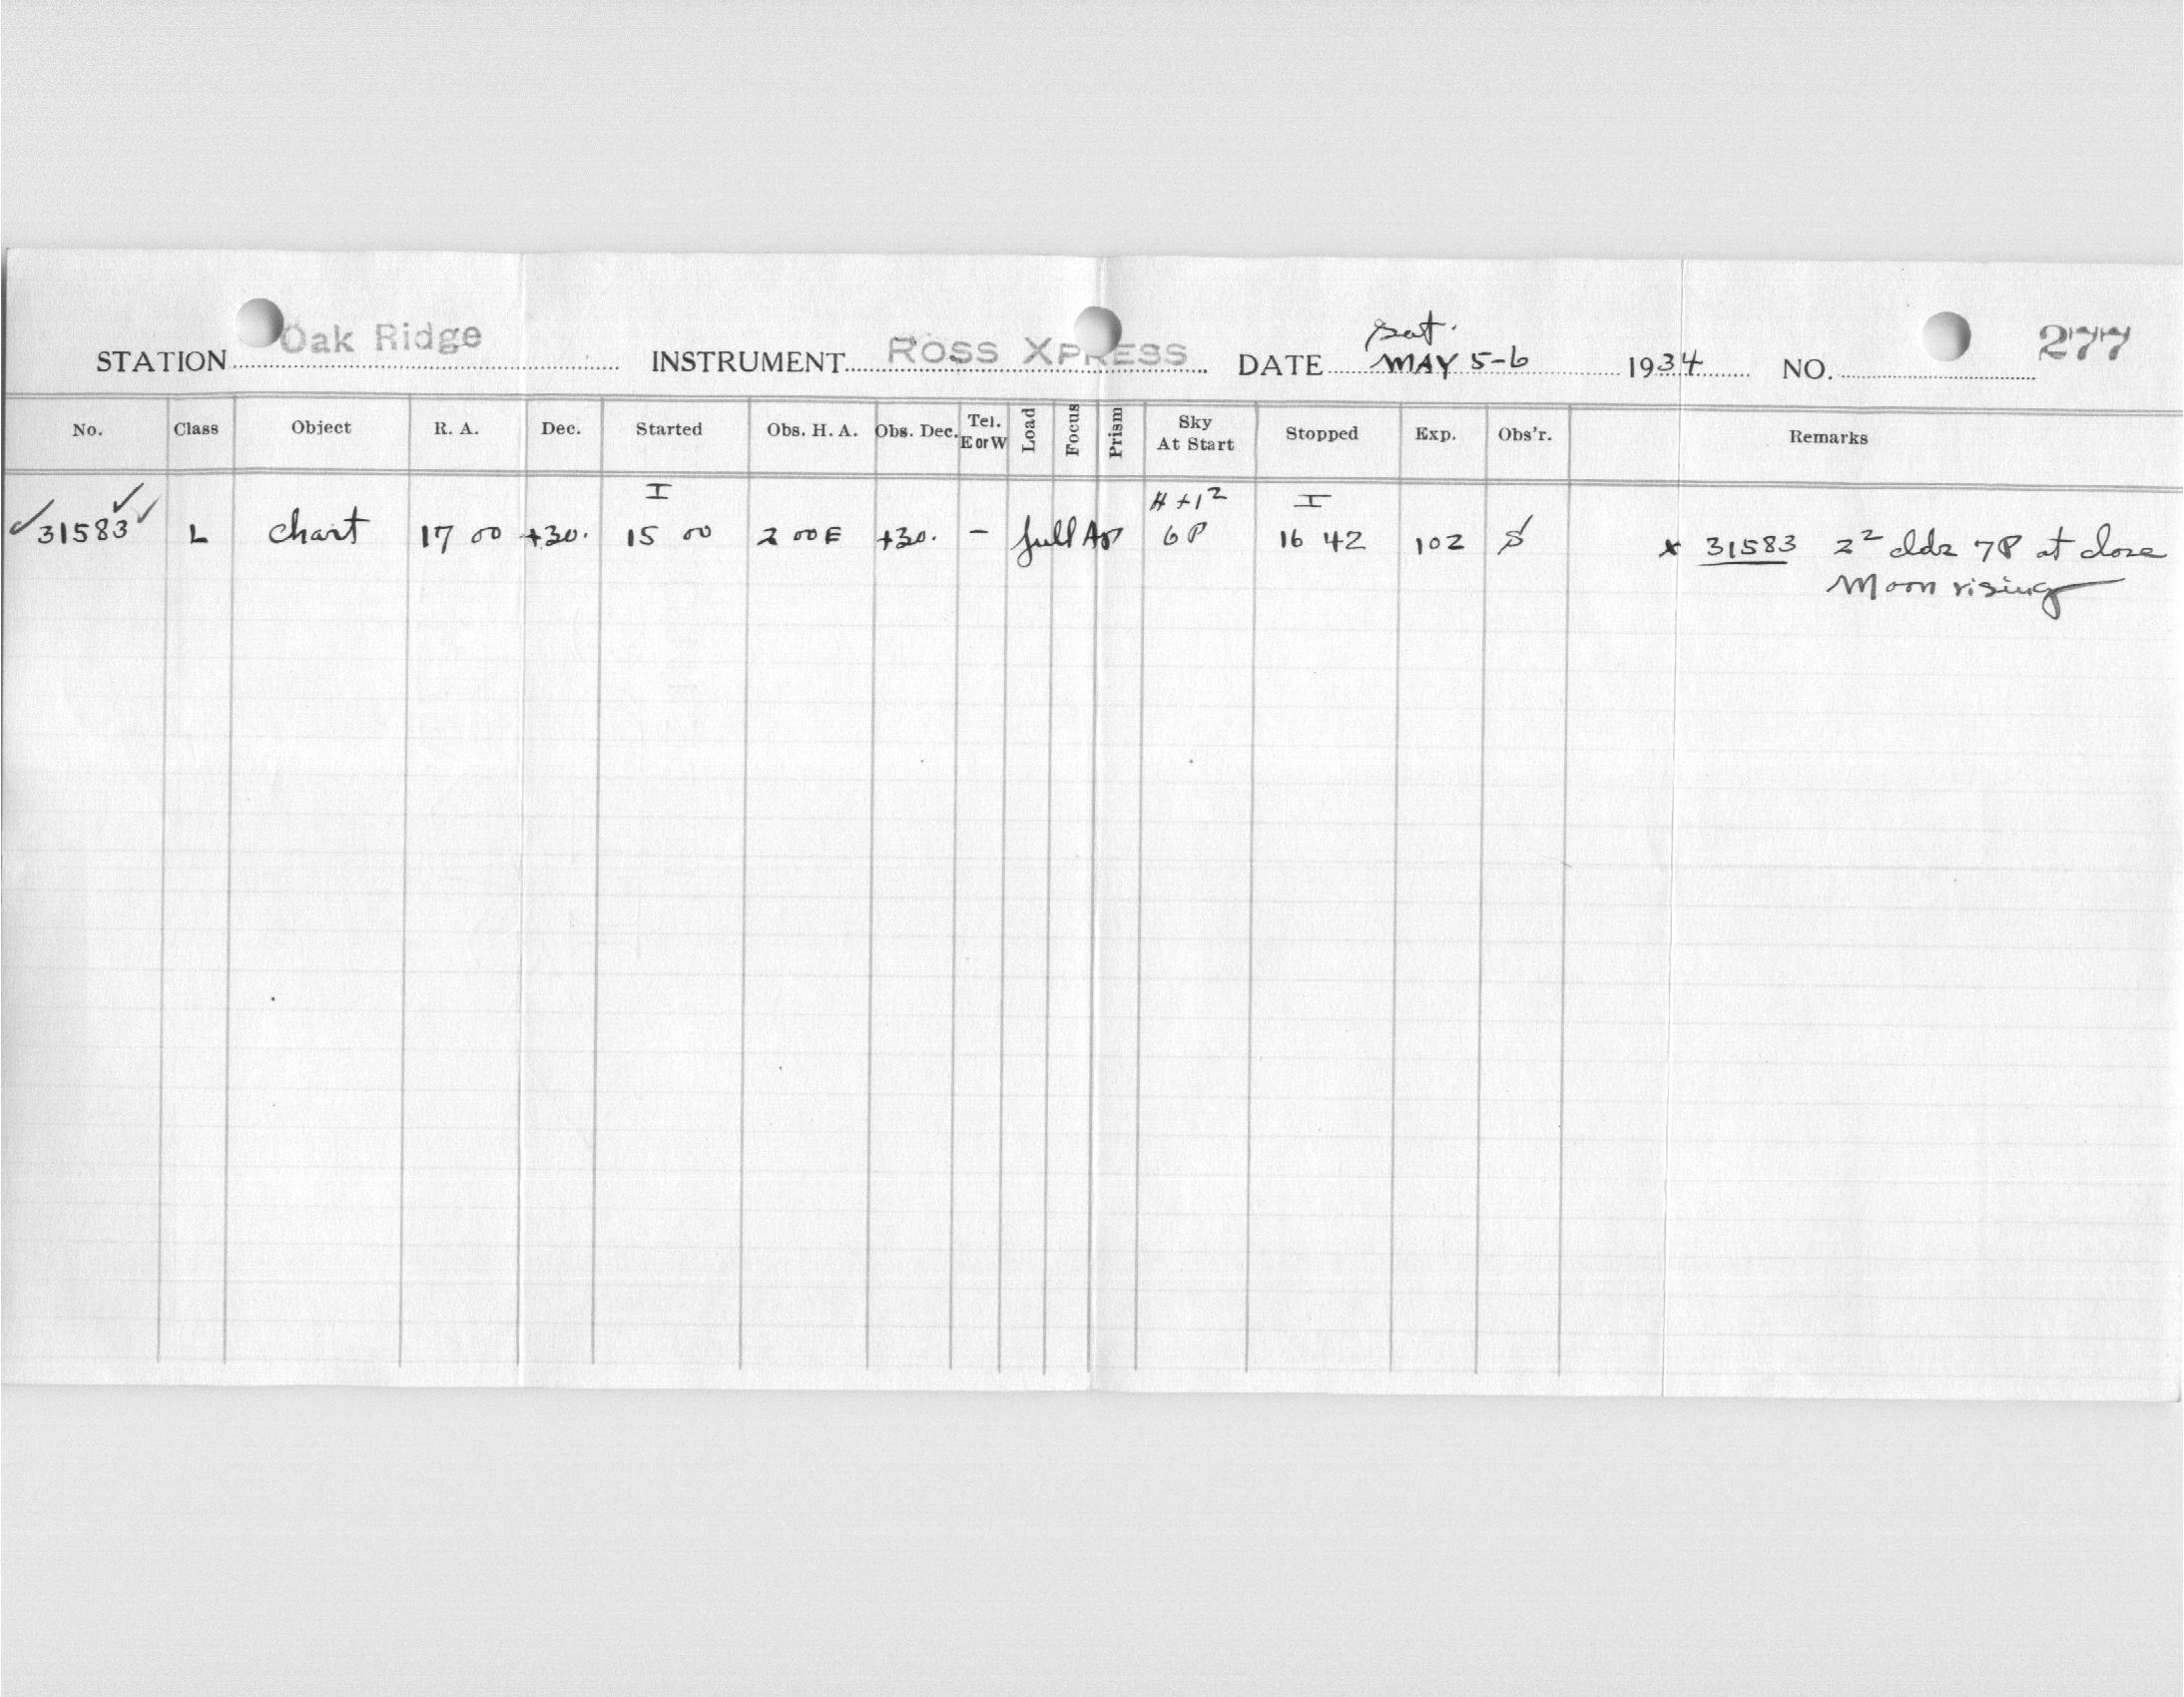 STATION Oak Ridge INSTRUMENT ROSS XPRESS DATE Sat. MAY 5-6 1934 NO. 277
No. Class Object R. A. Dec. Started Obs. H. A. Obs. Dec. Tel. E or W Load Focus Prism Sky At Start Stopped Exp. Obs'r. Remarks
I H +1² I
✓31583✓✓ L chart 17 00 +30. 15 00 2 00 E +30. - full Ap 6P 16 42 102 S x 31583 2² clds 7P at close
Moon rising